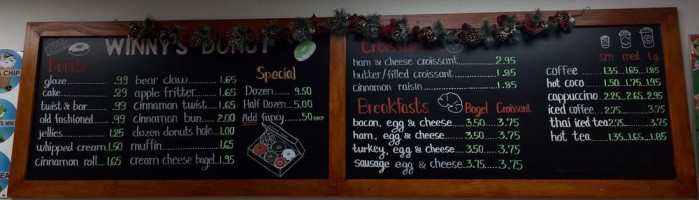 WINNY'S DONUT
Donuts
glaze .99
cake .89
twist & bar .99
old fashioned .99
jellies 1.25
whipped cream 1.50
cinnamon roll 1.65
bear claw 1.65
apple fritter 1.65
cinnamon twist 1.65
cinnamon bun 2.00
dozen donuts hole 1.00
muffin 1.65
cream cheese bagel 1.95
Special
Dozen 9.50
Half Dozen 5.00
Add fancy .50 each
Croissants
ham & cheese croissant 2.95
butter/filled croissant 1.85
cinnamon raisin 1.85
Breakfasts Bagel Croissant
bacon, egg & cheese 3.50 3.75
ham, egg & cheese 3.50 3.75
turkey, egg & cheese 3.50 3.75
sausage egg & cheese 3.75 3.75
sm med lg
coffee 1.35 1.65 1.85
hot coco 1.50 1.75 1.95
cappuccino 2.25 2.65 2.95
iced coffee 2.75 3.75
thai iced tea 2.75 3.75
hot tea 1.35 1.65 1.85